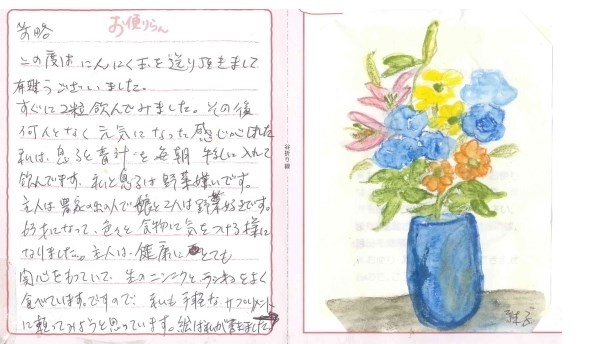 お便りらん
前略
この度はにんにく玉を送り頂きまして
有難うございました。
すぐに2粒飲んでみました。その後
何んとなく元気になった感じがしました
私は、息子と青汁を毎朝牛乳に入れて
飲んでます。私と息子は野菜嫌いです。
主人は農家の出の人で娘と2人は野菜好きです。
になって、色々と食物に気をつける様に
なりました。主人は、健康にとても
関心をもっていて、生のニンニクとラッキョをよく
食べています。ですので、私も手軽なサプリメント
に頼ってみようと思っています。絵は私が書きました
谷折り線